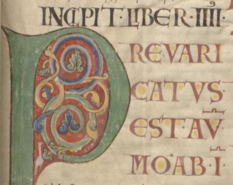 INCIPIT·LIBER·IIII·
PREVARI
CATVS
EST·AV
MOAB·I